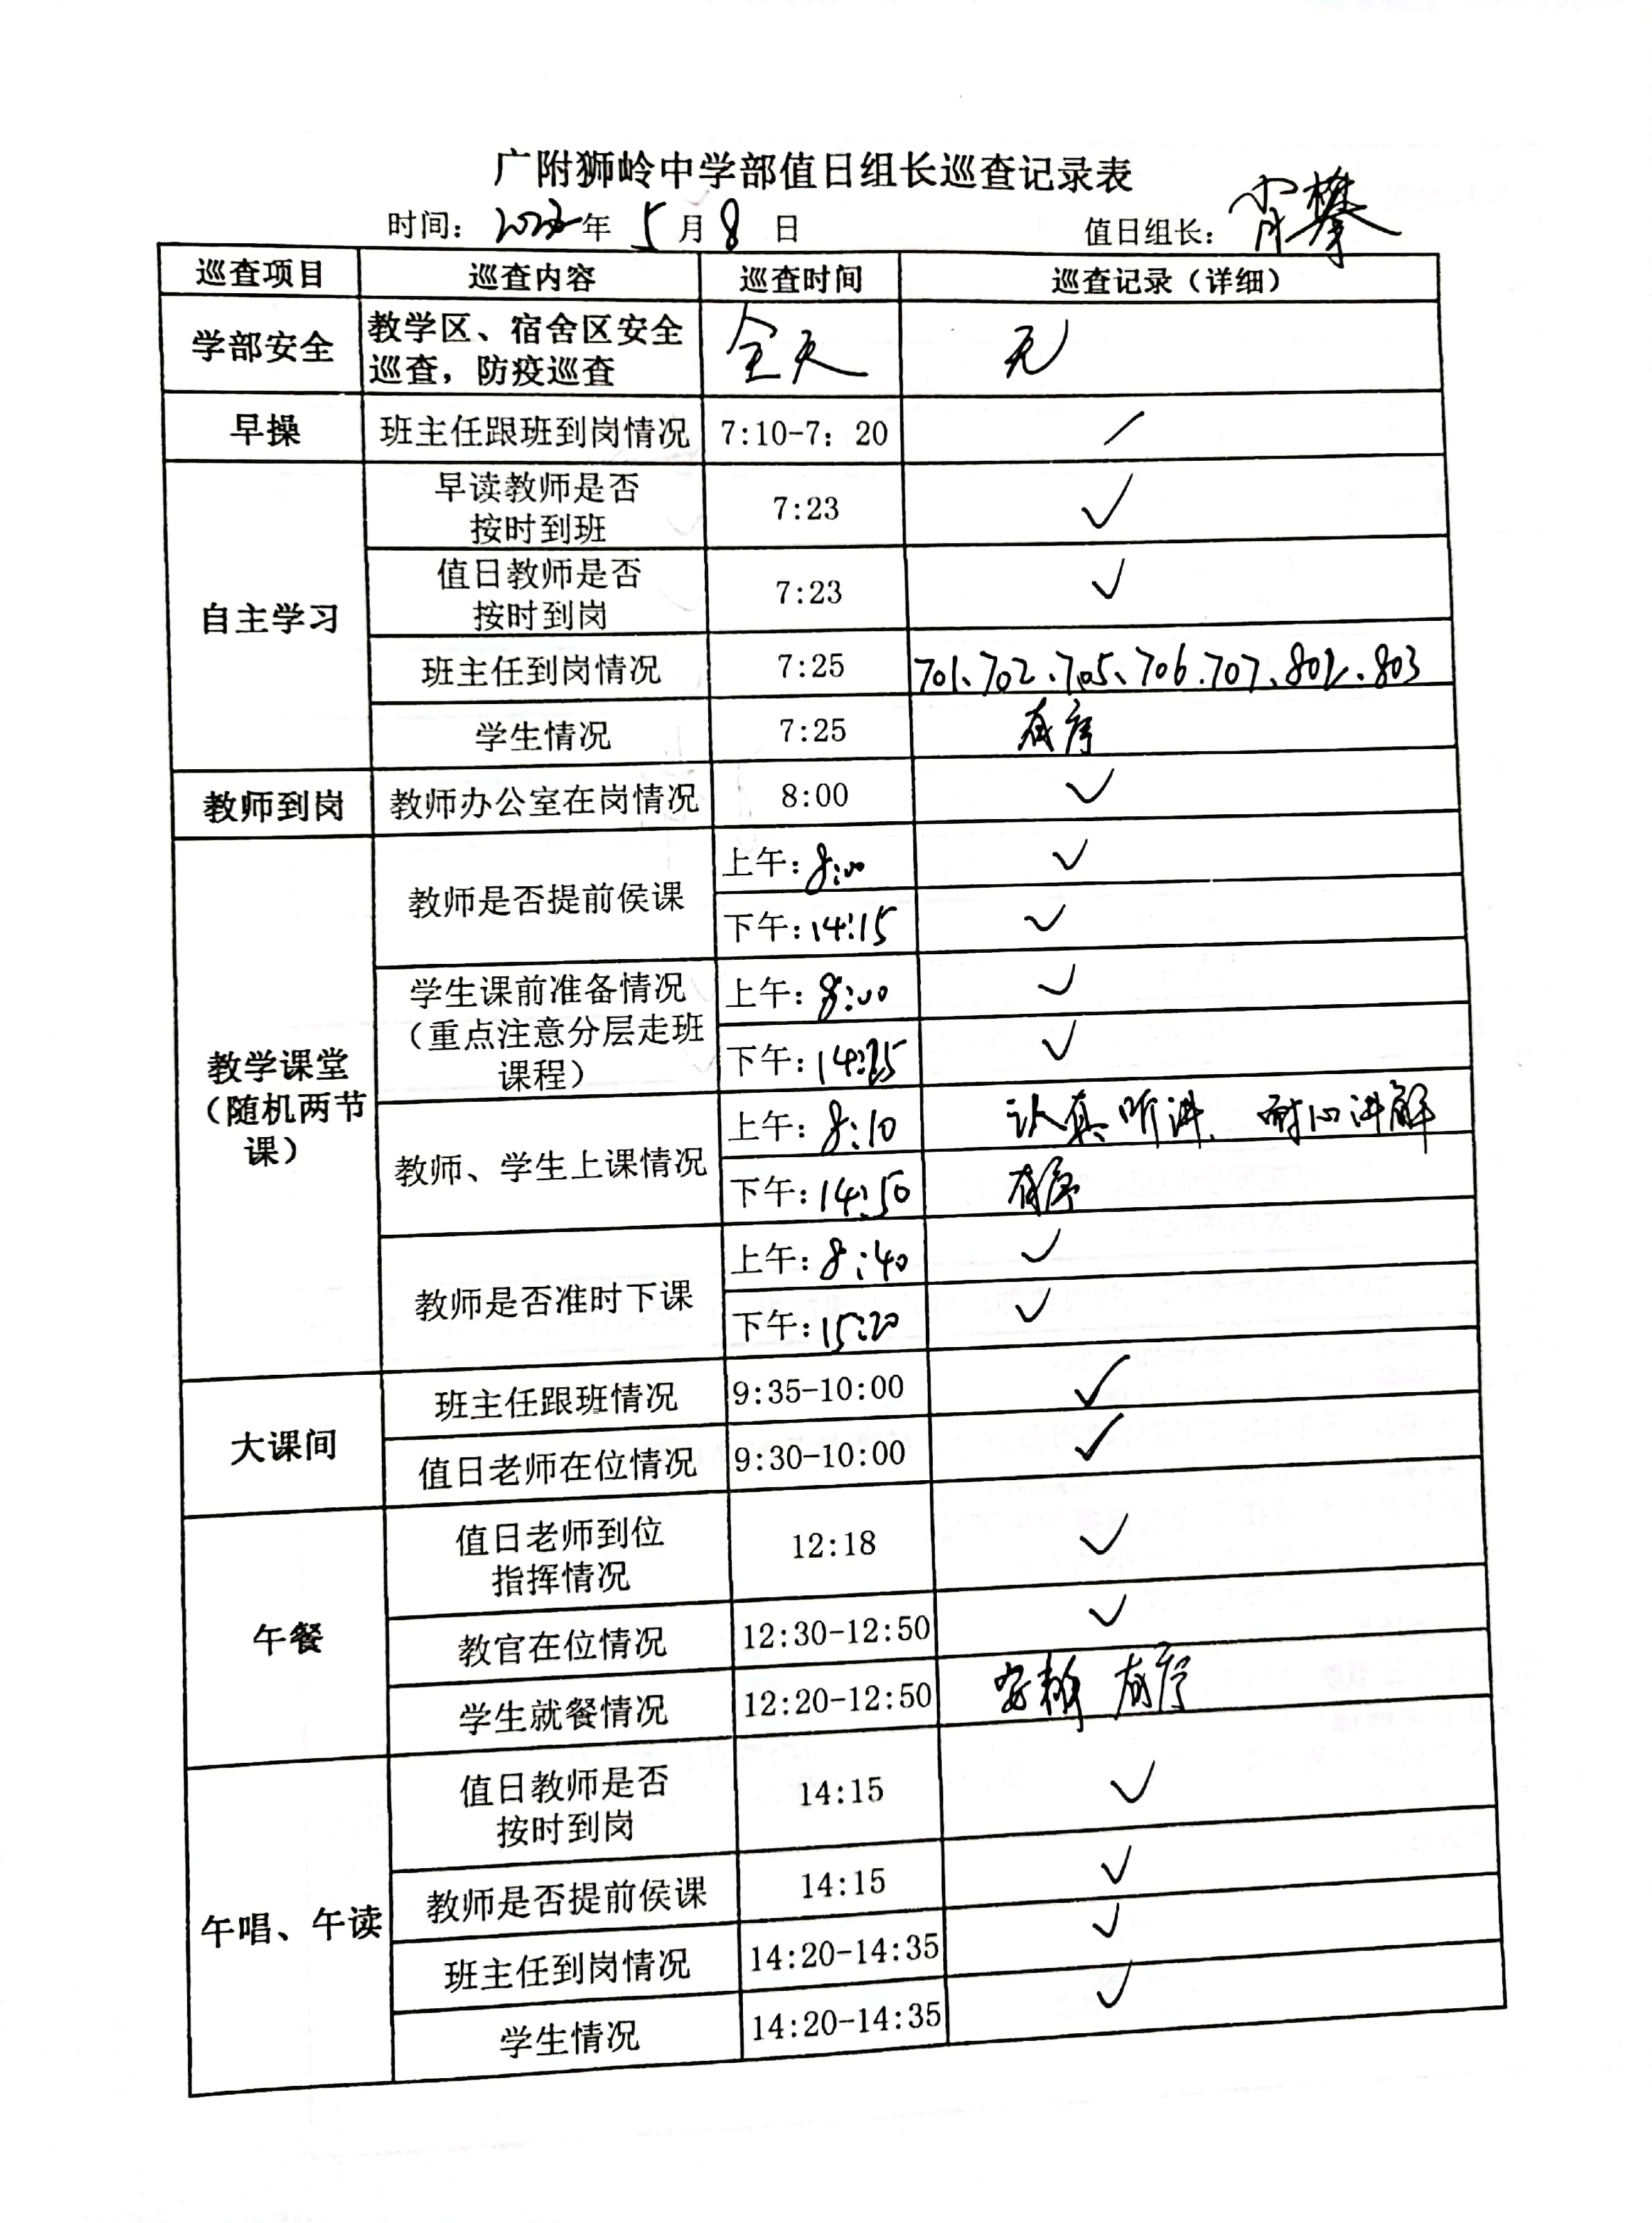 广附狮岭中学部值日组长巡查记录表
时间: 2022年 5月8 日 值日组长: 肖攀
巡查项目 巡查内容 巡查时间 巡查记录(详细)
学部安全 教学区、宿舍区安全 全天 无
巡查,防疫巡查
早操 班主任跟班到岗情况 7:10-7:20 /
自主学习 早读教师是否 7:23 ✓
按时到班
值日教师是否 7:23 ✓
按时到岗
班主任到岗情况 7:25 701、702、705、706.707、802、803
学生情况 7:25 有序
教师到岗 教师办公室在岗情况 8:00 ✓
教学课堂 教师是否提前侯课 上午:8:00 ✓
(随机两节 下午:14:15 ✓
课) 学生课前准备情况 上午:8:00 ✓
(重点注意分层走班 下午: ✓
课程)
教师、学生上课情况 上午:8:10 认真听讲、耐心讲解
下午:14:50 有序
教师是否准时下课 上午:8:40 ✓
下午:15:20 ✓
大课间 班主任跟班情况 9:35-10:00 ✓
值日老师在位情况 9:30-10:00 ✓
午餐 值日老师到位 12:18 ✓
指挥情况
教官在位情况 12:30-12:50 ✓
学生就餐情况 12:20-12:50 安静 有序
午唱、午读 值日教师是否 14:15 ✓
按时到岗
教师是否提前侯课 14:15 ✓
班主任到岗情况 14:20-14:35 ✓
学生情况 14:20-14:35 ✓